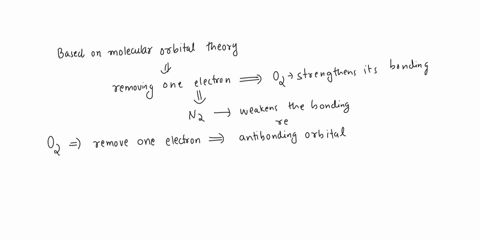 Based on molecular orbital theory
⇓
removing one electron ⟹ O2 → strengthens its bonding
⇓
N2 → weakens the bonding
re
O2 ⇒ remove one electron ⟹ antibonding orbital